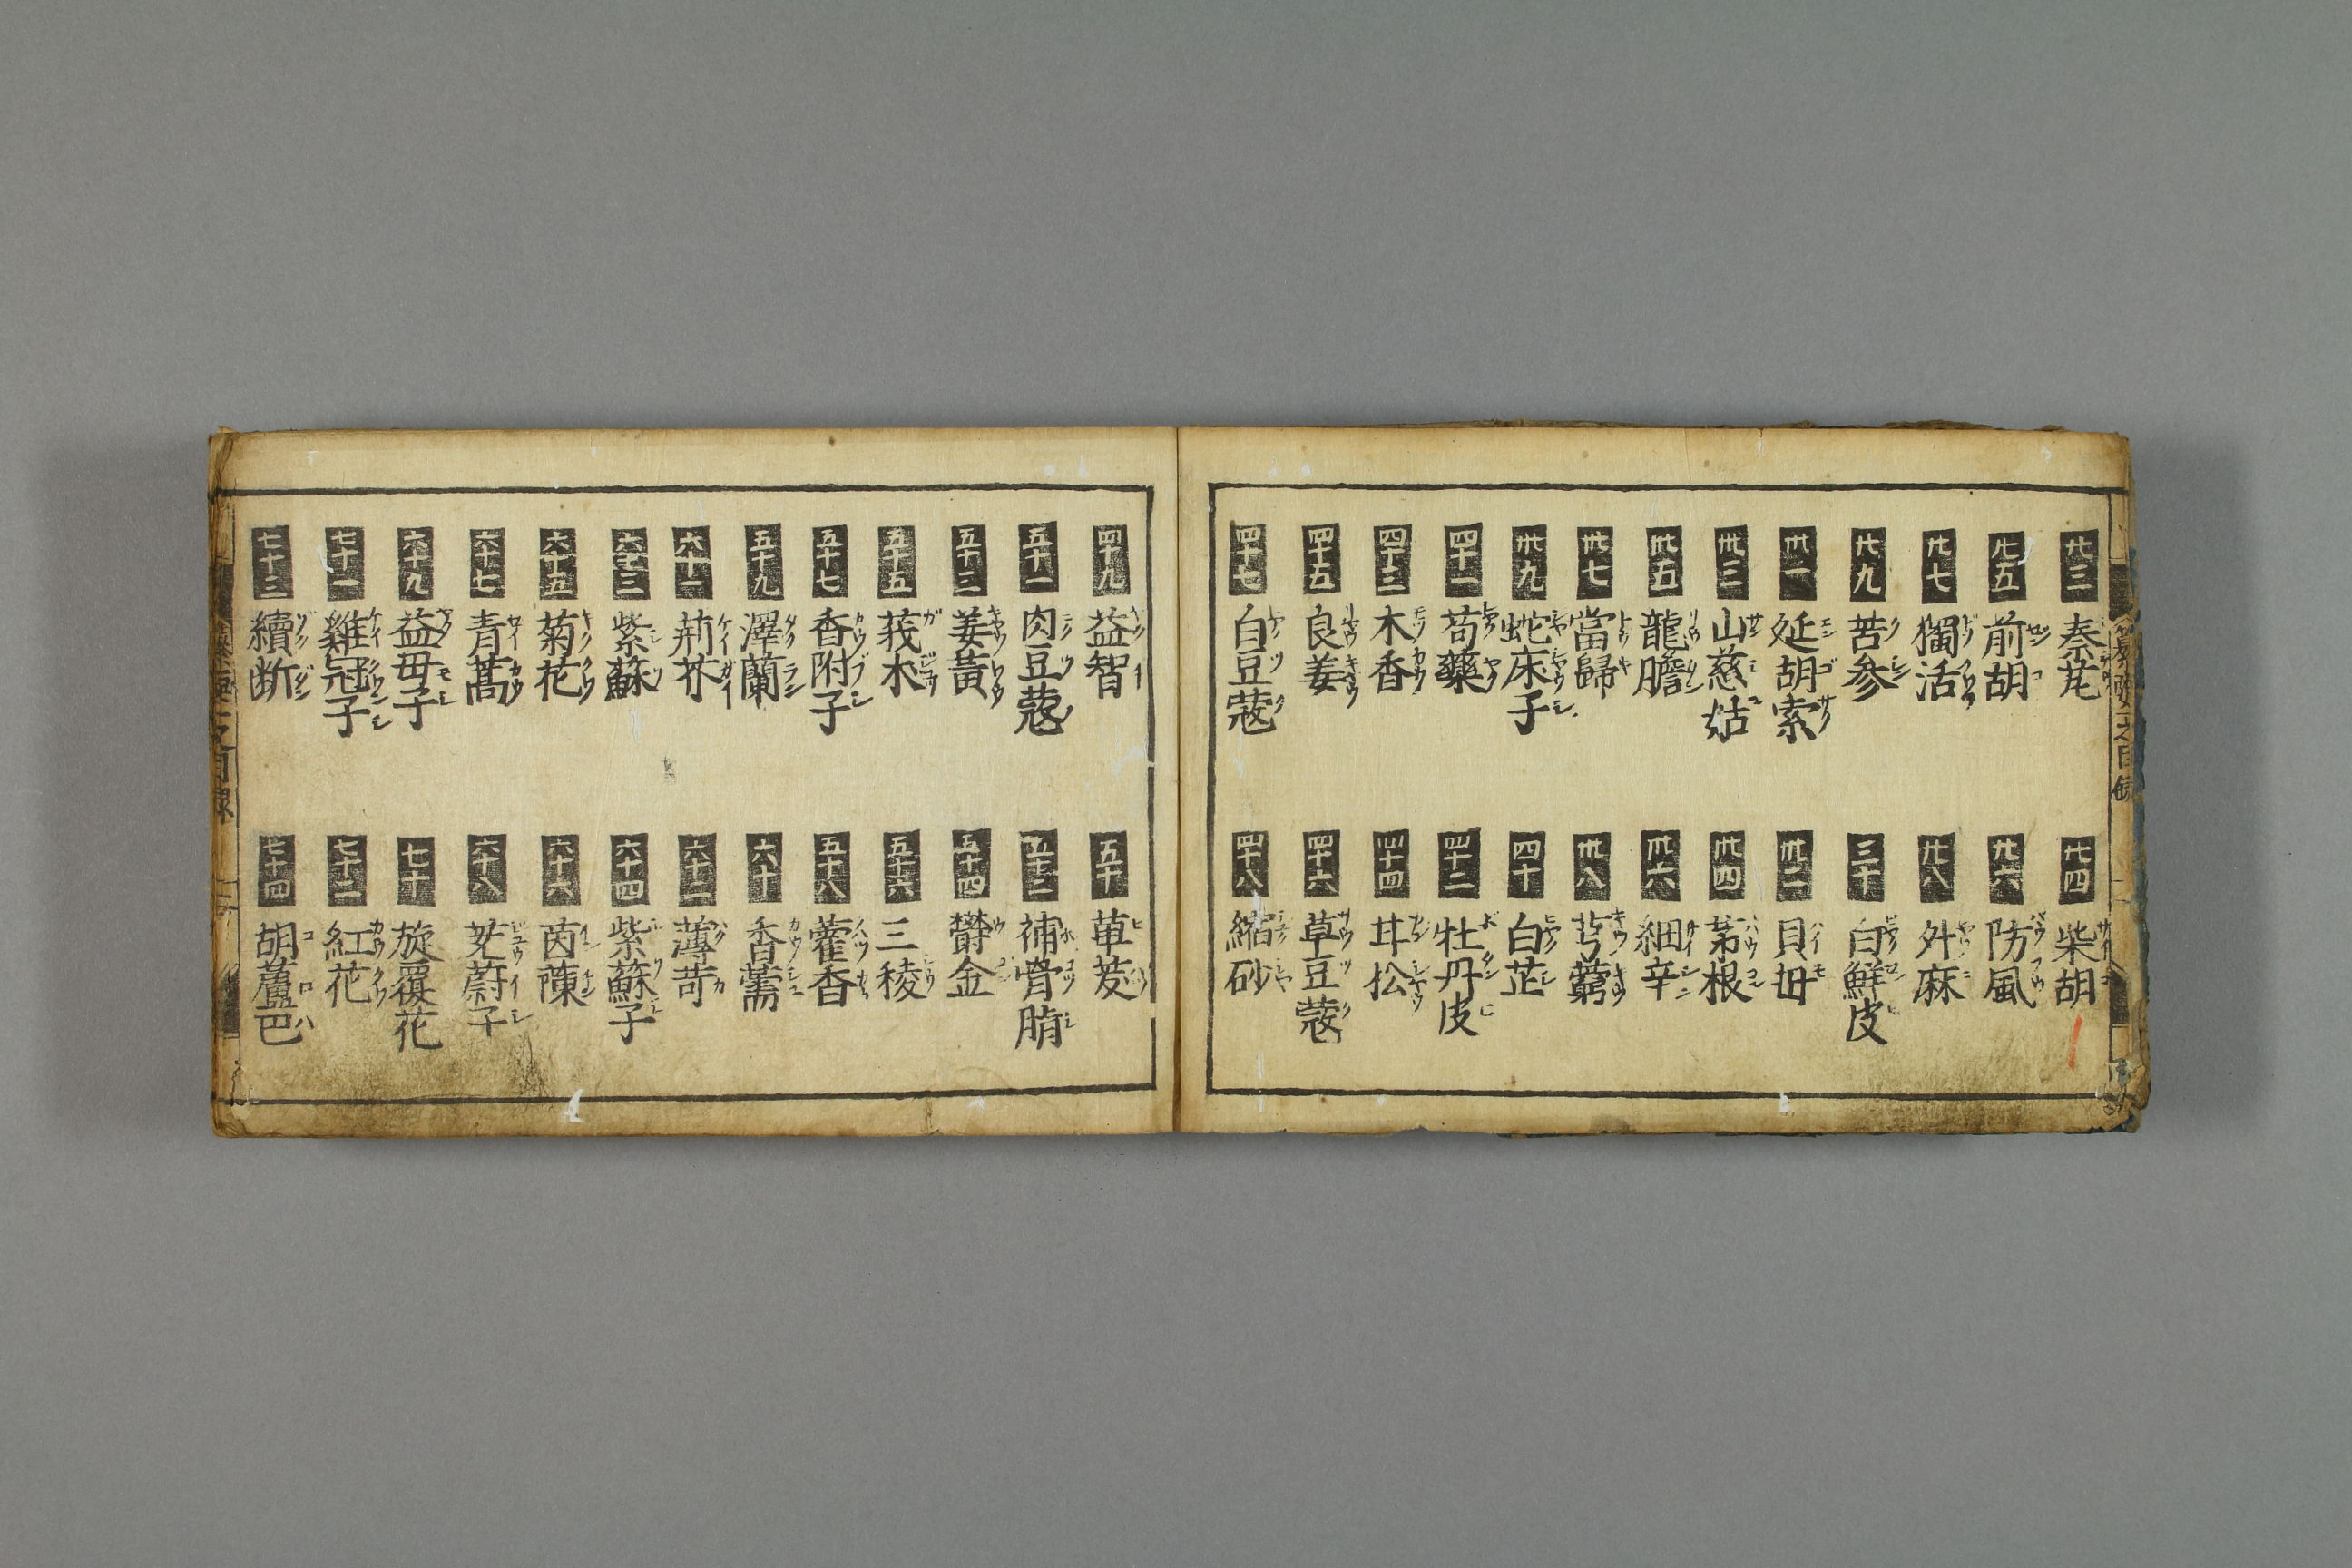 廿三 秦芃
廿四 柴胡
廿五 前胡
廿六 防風
廿七 獨活
廿八 外麻
廿九 苦参
三十 白鮮皮
卅一 延胡索
卅二 貝母
卅三 山慈姑
卅四 茅根
卅五 龍膽
卅六 細辛
卅七 當歸
卅八 芎藭
卅九 蛇床子
四十 白芷
四十一 芍藥
四十二 牡丹皮
四十三 木香
四十四 甘松
四十五 良姜
四十六 草豆蔲
四十七 白豆蔲
四十八 縮砂
四十九 益智
五十 蓽茇
五十一 肉豆蔲
五十二 補骨脂
五十三 姜黃
五十四 欝金
五十五 莪朮
五十六 三稜
五十七 香附子
五十八 藿香
五十九 澤蘭
六十 香薷
六十一 荊芥
六十二 薄苛
六十三 紫蘇
六十四 紫蘇子
六十五 菊花
六十六 茵蔯
六十七 青蒿
六十八 茺蔚子
六十九 益母子
七十 旋覆花
七十一 雞冠子
七十二 紅花
七十三 續断
七十四 胡蘆巴